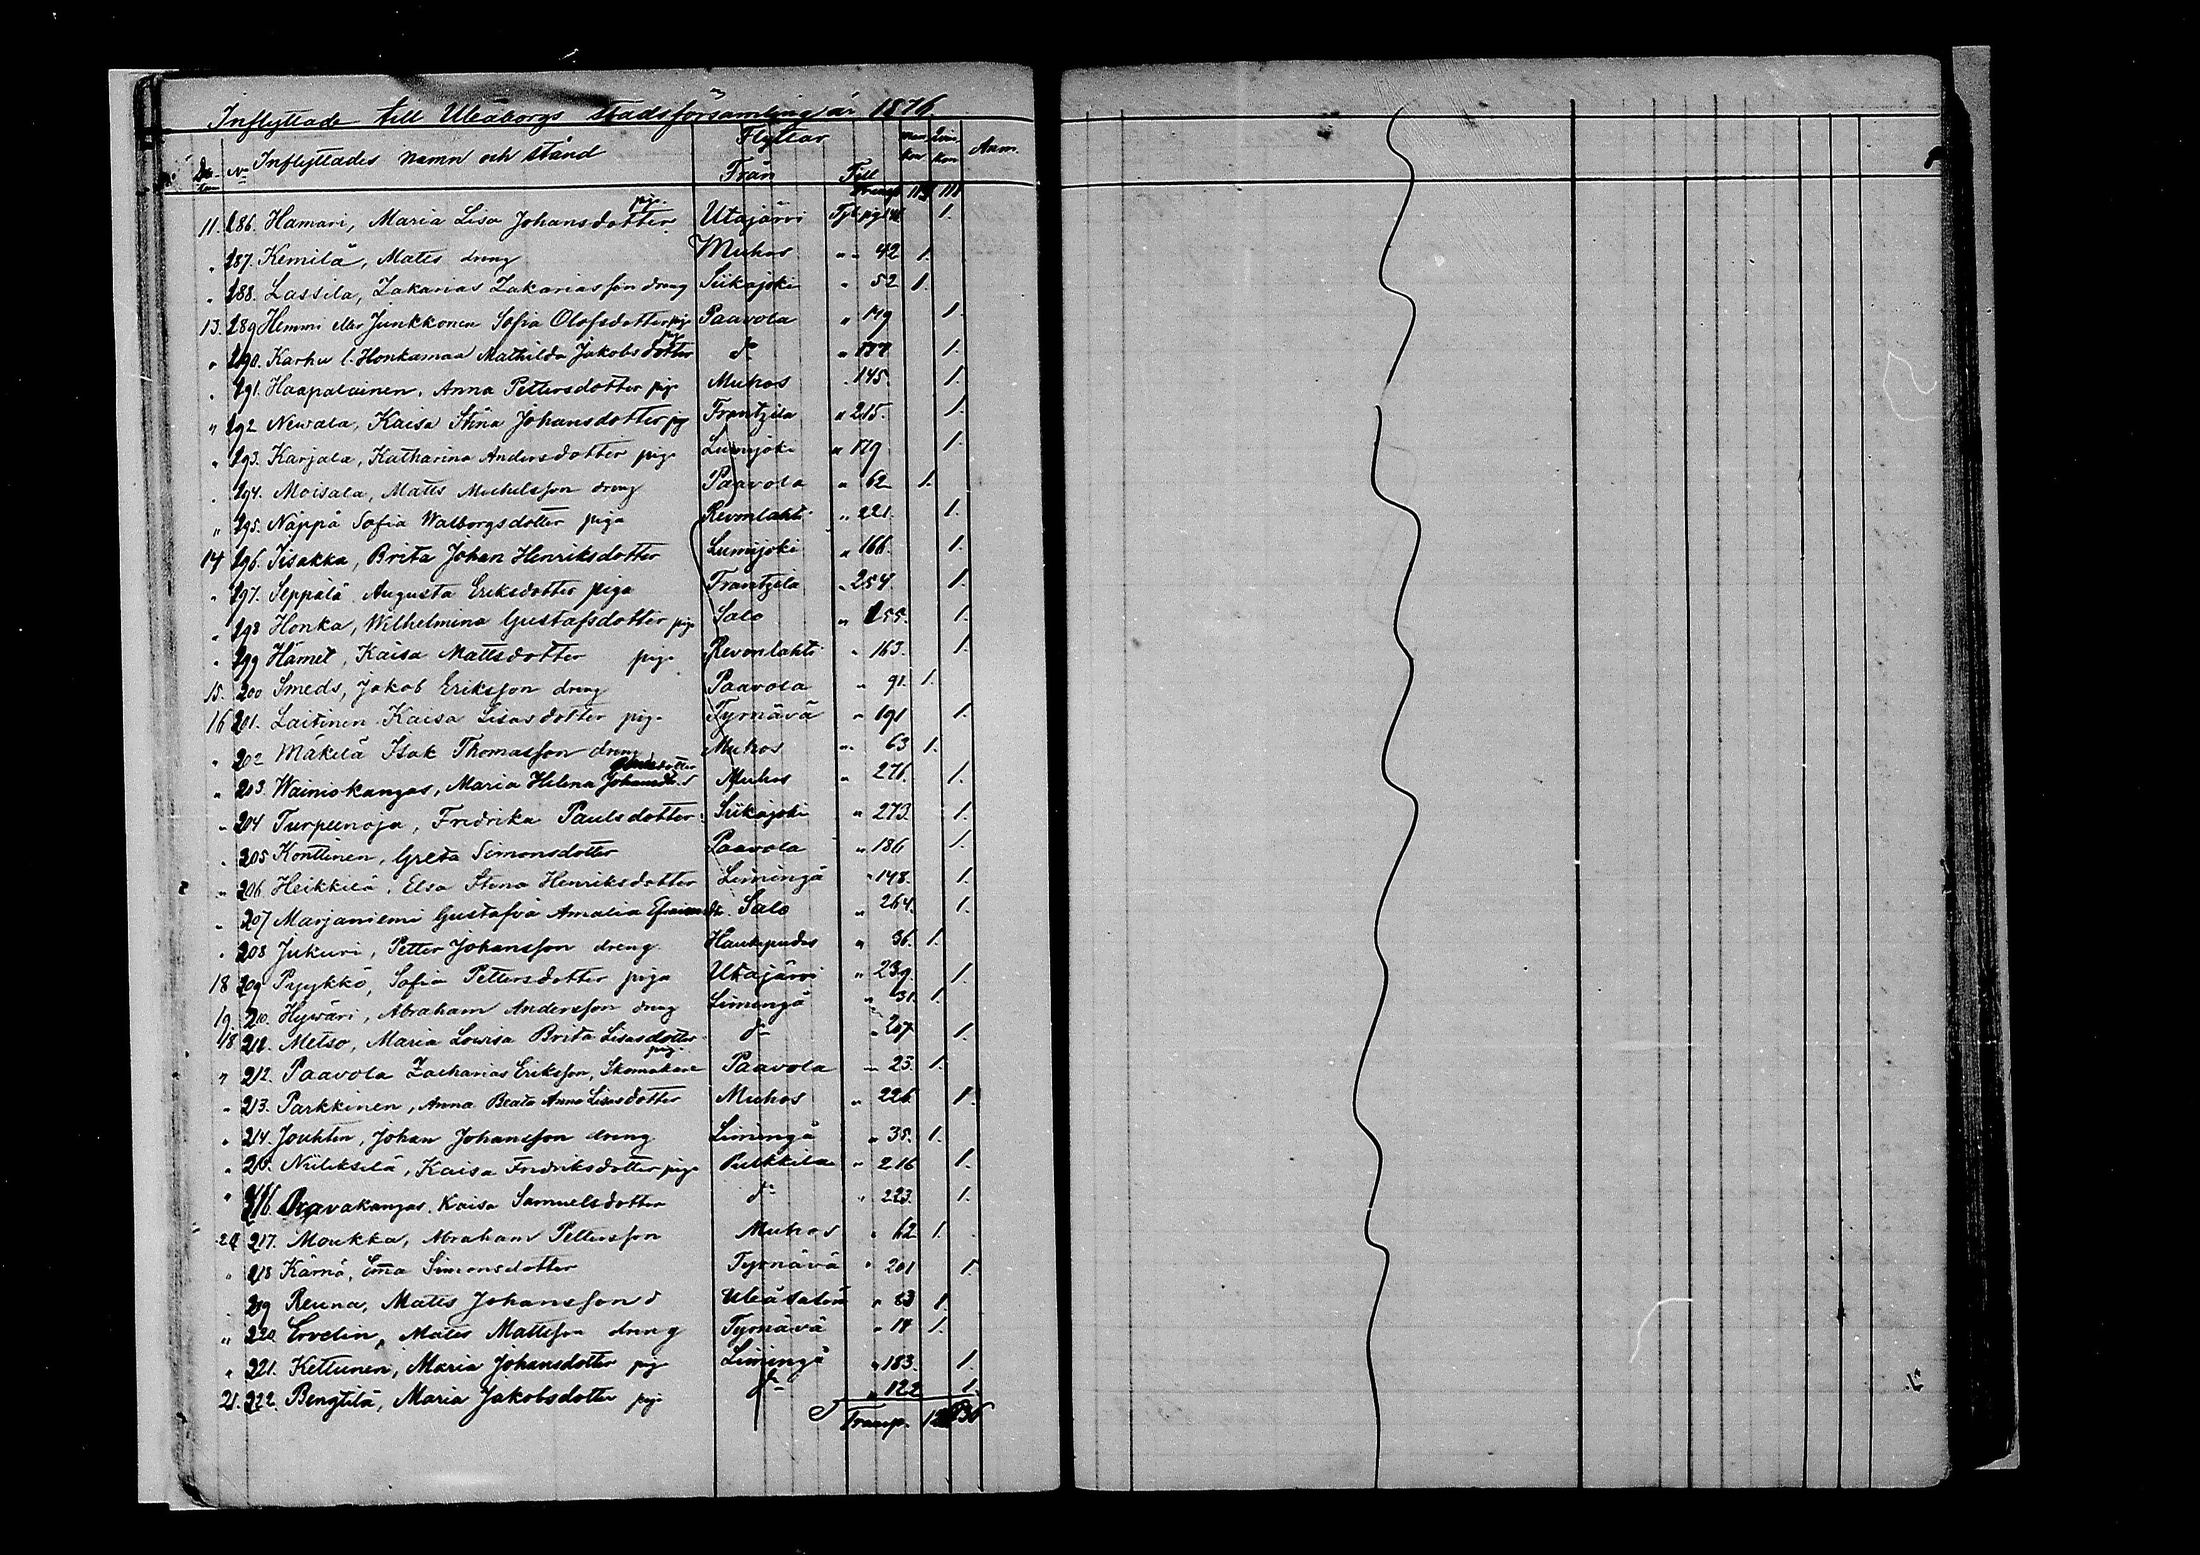 Inflyttade till Uleåborgs stadsförsamling år 1876.
N Inflyttades namn och stånd Flyttar Från Till man kön Qvin kön Anm.
Transp. 111
11. 186. Hamari, Maria Lisa Johansdotter pig. Utajärvi 1.
" 187. Kemilä, Matts dreng Muhos " " 42 1.
" 188. Lassila, Zakarias Zakariasson dreng Siikajoki " 52 1.
13. 189 Hemmi eller Junkkonen Sofia Olofsdotter pig Paavola " 1.
" 190. Karhu l. Honkamaa Mathilda Jakobsdotter pig do " 177 1.
" 191. Haapalainen, Anna Pettersdotter pig Muhos " 145. 1.
" 192 Newala, Kaisa Stina Johansdotter pig Frantzila " 215. 1.
" 193. Karjala, Katharina Andersdotter piga Lumijoki " 179 1.
" 194. Moisala, Matts Michelsson dreng Paavola " 62 1.
" 195. Näppä Sofia Walborgsdotter piga Revonlahti " 221. 1.
14 196. Iisakka, Brita Johan Henriksdotter Lumijoki " 166. 1.
" 197. Seppälä Augusta Eriksdotter piga Frantzila " 254. 1.
" 198 Honka, Wilhelmina Gustafsdotter pig Salo " 155. 1.
" 199 Hämet, Kaisa Mattsdotter pig. Revonlahti " 163. 1.
15. 200 Smeds, Jakob Eriksson dreng Paavola " 91. 1.
16 201. Laitinen Kaisa Lisasdotter pig. Tyrnävä " 191 1.
" 202 Mäkelä Isak Thomasson dreng. Muhos " 63 1.
" 203. Wainiokangas, Maria Helena Muhos " 276. 1.
" 204 Turpeenoja, Fredrika Paulsdotter Siikajoki " 273. 1.
" 205 Konttinen, Greta Simonsdotter Paavola " 186 1.
" 206 Heikkilä, Elsa Stina Henriksdotter Limingå " 148. 1.
" 207 Marjaniemi Gustafva Amalia Efraimsdtr. Salo " 264. 1.
" 208 Jukuri, Petter Johansson dreng Haukipudas " 36. 1.
18 209 Pyykkö, Sofia Pettersdotter piga Utajärvi " 239. 1.
19 210. Hyväri, Abraham Andersson dreng Limingå " 31. 1.
18 211. Metso, Maria Lovisa Brita Lisasdotter pig. do " 207 1.
" 212. Paavola Zacharias Eriksson, Skomakare Paavola " 23. 1.
" 213. Parkkinen, Anna Beata Anna Lisasdotter Muhos " 226. 1.
" 214. Jouhten, Johan Johansson dreng Limingå " 35. 1.
" 215. Niileksilä, Kaisa Fredriksdotter pig. Pulkkila " 216 1.
" 216. Oravakangas, Kaisa Samuelsdotter do " 223. 1.
20 217. Moukka, Abraham Pettersson Muhos " 62 1.
" 218 Kärnä, Ema Simonsdotter Tyrnävä " 201 1.
219 Reuna, Matts Johansson d Uleåsalo " 83 1.
" 220. Ervelin, Matts Mattsson dreng Tyrnävä " 14 1.
" 221. Kettunen, Maria Johansdotter pig Limingå " 183. 1.
21. 222. Bengtilä, Maria Jakobsdotter pig. do " 122 1.
Transp. 136